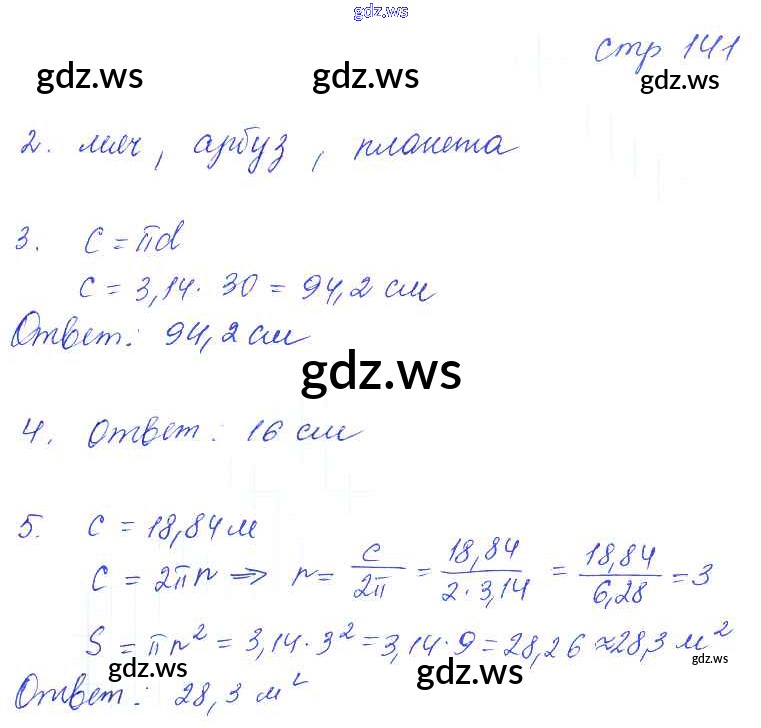 gdz.ws
стр 141
gdz.ws gdz.ws gdz.ws
2. мяч, арбуз, планета
3. C = πd
C = 3,14 · 30 = 94,2 см
Ответ: 94,2 см
gdz.ws
4. Ответ: 16 см
5. C = 18,84 м
C = 2πr => r = C/2π = 18,84/2·3,14 = 18,84/6,28 = 3
S = πr² = 3,14 · 3² = 3,14 · 9 = 28,26 ≈ 28,3 м²
gdz.ws gdz.ws gdz.ws
Ответ: 28,3 м²